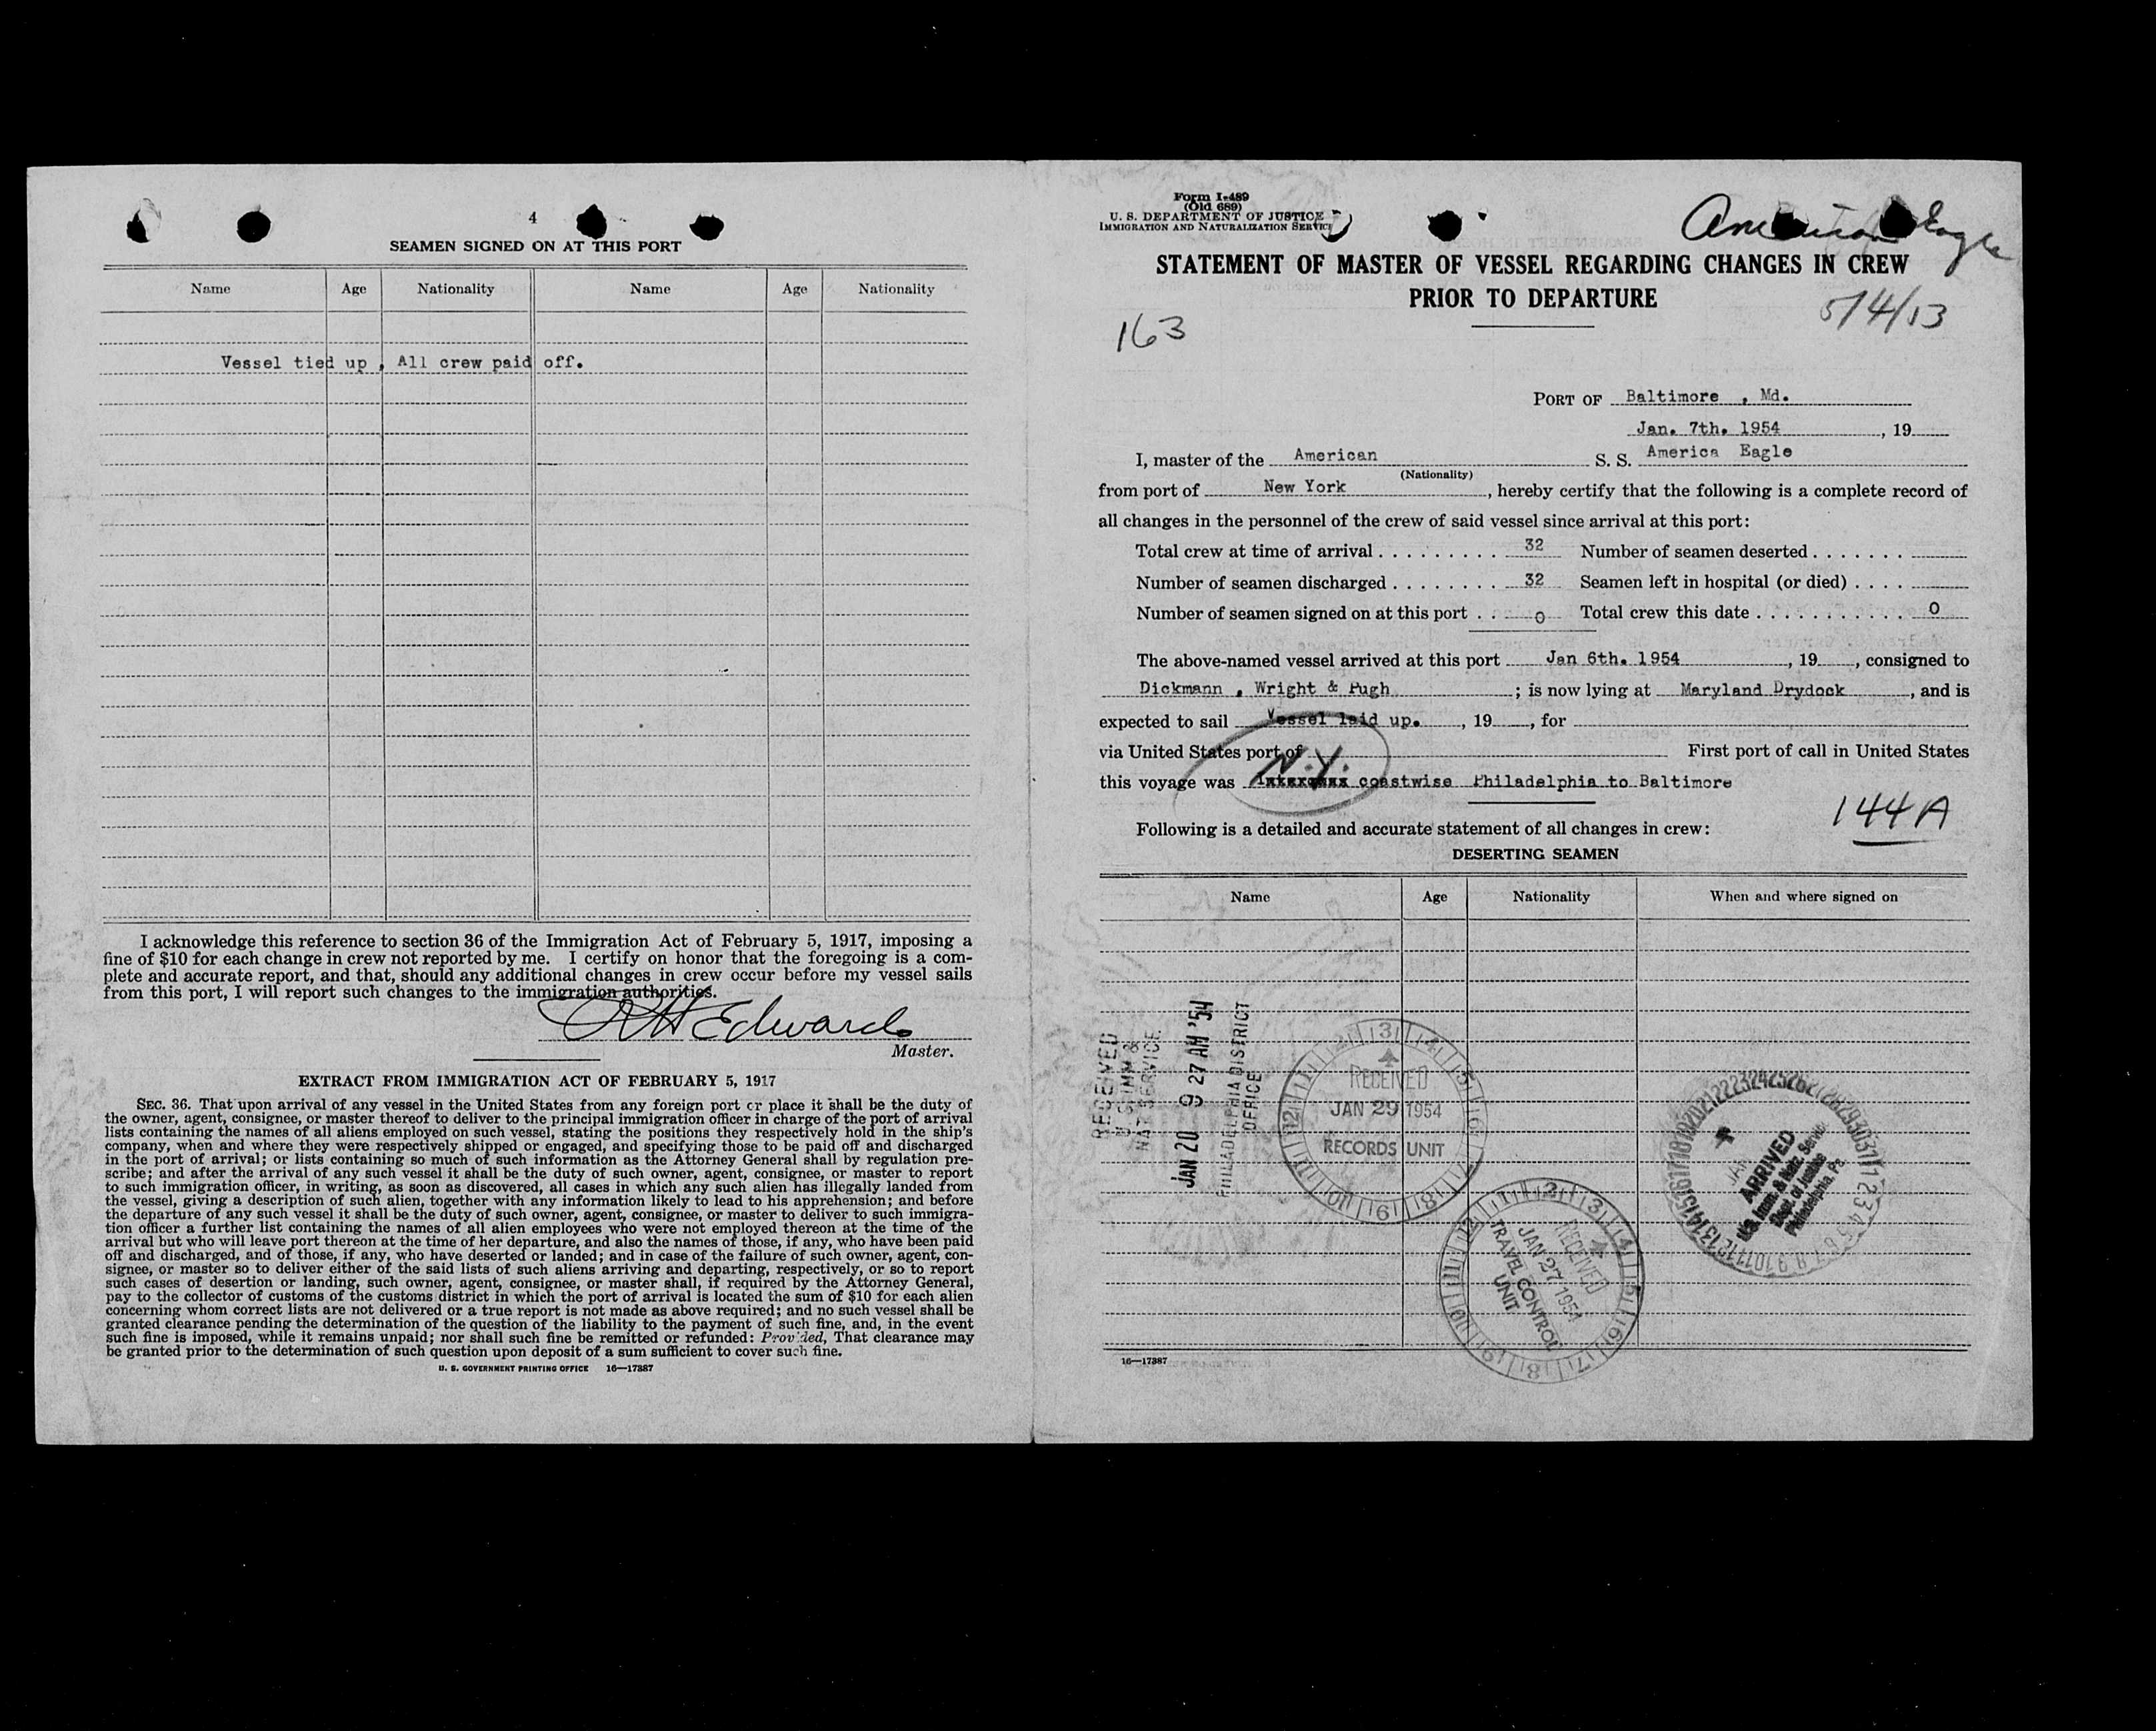 4
SEAMEN SIGNED ON AT THIS PORT
Name Age Nationality Name Age Nationality
Vessel tied up , All crew paid off.
I acknowledge this reference to section 36 of the Immigration Act of February 5, 1917, imposing a
fine of $10 for each change in crew not reported by me. I certify on honor that the foregoing is a com-
plete and accurate report, and that, should any additional changes in crew occur before my vessel sails
from this port, I will report such changes to the immigration authorities.
R H Edwards
Master.
EXTRACT FROM IMMIGRATION ACT OF FEBRUARY 5, 1917
SEC. 36. That upon arrival of any vessel in the United States from any foreign port or place it shall be the duty of
the owner, agent, consignee, or master thereof to deliver to the principal immigration officer in charge of the port of arrival
lists containing the names of all aliens employed on such vessel, stating the positions they respectively hold in the ship's
company, when and where they were respectively shipped or engaged, and specifying those to be paid off and discharged
in the port of arrival; or lists containing so much of such information as the Attorney General shall by regulation pre-
scribe; and after the arrival of any such vessel it shall be the duty of such owner, agent, consignee, or master to report
to such immigration officer, in writing, as soon as discovered, all cases in which any such alien has illegally landed from
the vessel, giving a description of such alien, together with any information likely to lead to his apprehension; and before
the departure of any such vessel it shall be the duty of such owner, agent, consignee, or master to deliver to such immigra-
tion officer a further list containing the names of all alien employees who were not employed thereon at the time of the
arrival but who will leave port thereon at the time of her departure, and also the names of those, if any, who have been paid
off and discharged, and of those, if any, who have deserted or landed; and in case of the failure of such owner, agent, con-
signee, or master so to deliver either of the said lists of such aliens arriving and departing, respectively, or so to report
such cases of desertion or landing, such owner, agent, consignee, or master shall, if required by the Attorney General,
pay to the collector of customs of the customs district in which the port of arrival is located the sum of $10 for each alien
concerning whom correct lists are not delivered or a true report is not made as above required; and no such vessel shall be
granted clearance pending the determination of the question of the liability to the payment of such fine, and, in the event
such fine is imposed, while it remains unpaid; nor shall such fine be remitted or refunded: Provided, That clearance may
be granted prior to the determination of such question upon deposit of a sum sufficient to cover such fine.
U. S. GOVERNMENT PRINTING OFFICE 16—17387
Form I-489
(Old 689)
U. S. DEPARTMENT OF JUSTICE
IMMIGRATION AND NATURALIZATION SERVICE
American Eagle
STATEMENT OF MASTER OF VESSEL REGARDING CHANGES IN CREW
PRIOR TO DEPARTURE
163
PORT OF Baltimore , Md.
Jan. 7th. 1954 , 19
I, master of the American S. S. America Eagle
(Nationality)
from port of New York , hereby certify that the following is a complete record of
all changes in the personnel of the crew of said vessel since arrival at this port:
Total crew at time of arrival 32 Number of seamen deserted
Number of seamen discharged 32 Seamen left in hospital (or died)
Number of seamen signed on at this port 0 Total crew this date 0
The above-named vessel arrived at this port Jan 6th. 1954 , 19 , consigned to
Dickmann , Wright & Pugh ; is now lying at Maryland Drydock , and is
expected to sail Vessel laid up. , 19 , for
via United States port of First port of call in United States
this voyage was N.Y. coastwise Philadelphia to Baltimore
144A
Following is a detailed and accurate statement of all changes in crew:
DESERTING SEAMEN
Name Age Nationality When and where signed on
RECEIVED
U.S. IMM &
NAT SERVICE.
JAN 20 9 27 AM '54
PHILADELPHIA DISTRICT
OFFICE
RECEIVED
JAN 29 1954
RECORDS UNIT
RECEIVED
JAN 27 1954
TRAVEL CONTROL
UNIT
JAN
ARRIVED
U.S. Imm. & Natz. Service
Dept. of Justice
Philadelphia, Pa.
16—17387